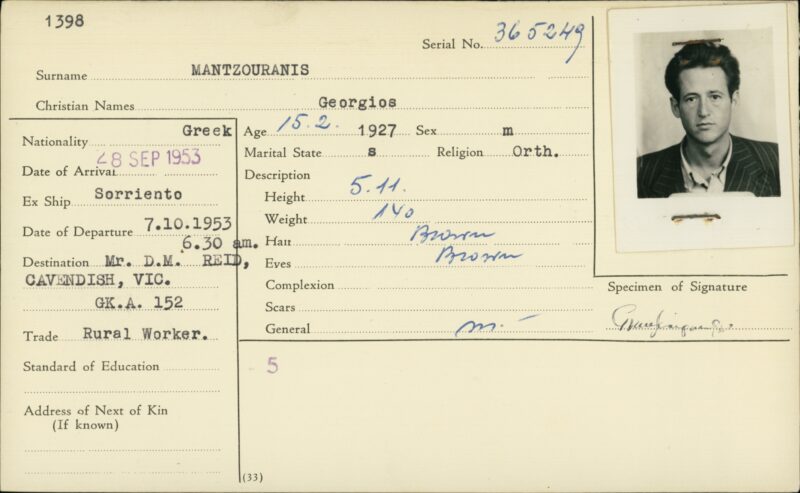 1398
Serial No. 365249
Surname MANTZOURANIS
Christian Names Georgios
Nationality Greek
Date of Arrival 28 SEP 1953
Ex Ship Sorriento
Date of Departure 7.10.1953
6.30 am.
Destination Mr. D.M. REID,
CAVENDISH, VIC.
GK.A. 152
Trade Rural Worker.
Standard of Education
Address of Next of Kin
(If known)
Age 15.2. 1927 Sex m
Marital State s Religion Orth.
Description
Height 5.11.
Weight 140
Hair Brown
Eyes Brown
Complexion
Scars
General m.
5
(33)
Specimen of Signature